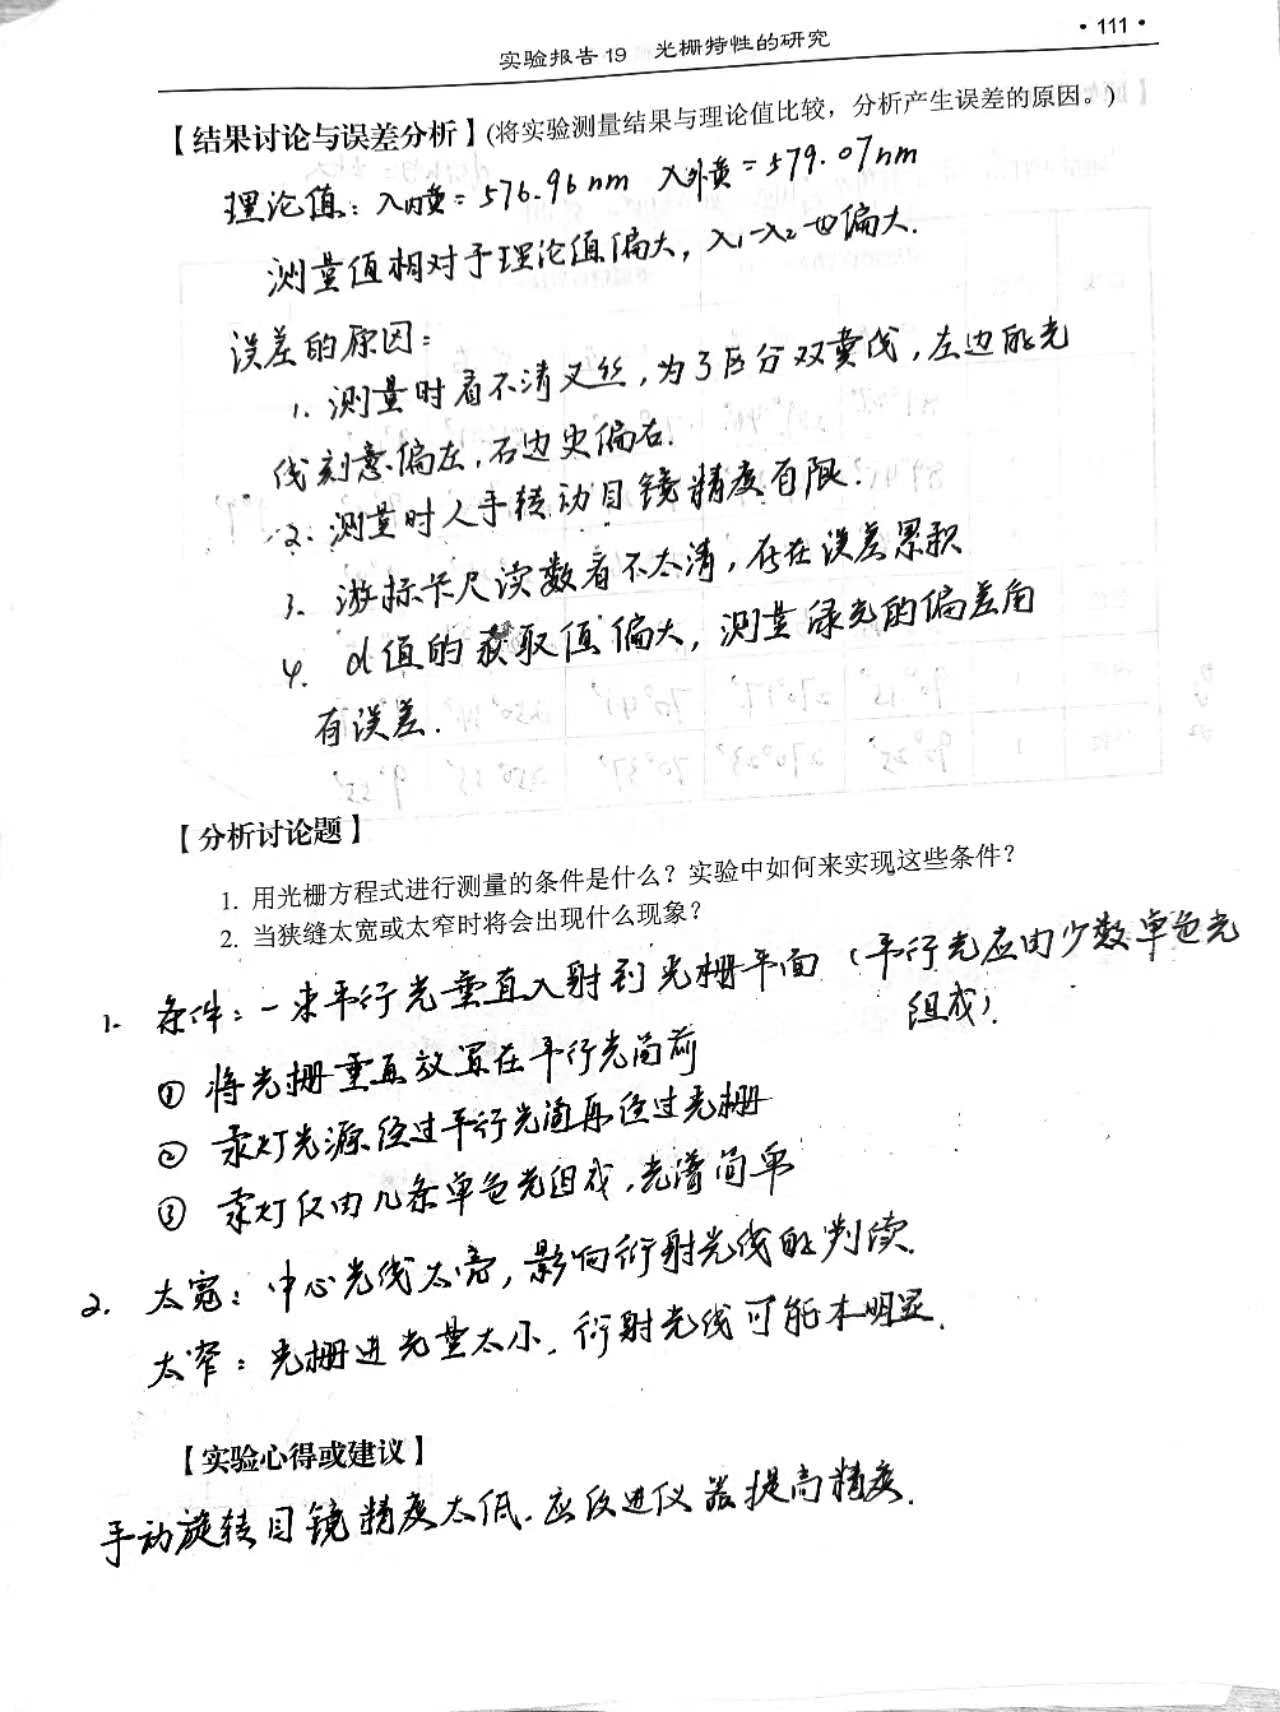 实验报告19 光栅特性的研究
·111·
【结果讨论与误差分析】(将实验测量结果与理论值比较，分析产生误差的原因。)
理论值：λ内黄=576.96nm λ外黄=579.07nm
测量值相对于理论值偏大，λ₁-λ₂也偏大.
误差的原因：
1. 测量时看不清叉丝，为了区分双黄线，左边的光
线刻意偏左，右边更偏右.
2. 测量时人手转动目镜精度有限.
3. 游标卡尺读数看不太清，存在误差累积
4. d值的获取值偏大，测量绿光的偏差角
有误差.
【分析讨论题】
1. 用光栅方程式进行测量的条件是什么？实验中如何来实现这些条件？
2. 当狭缝太宽或太窄时将会出现什么现象？
1. 条件：一束平行光垂直入射到光栅平面（平行光应由少数单色光
组成）.
① 将光栅垂直放置在平行光筒前
② 汞灯光源经过平行光筒再经过光栅
③ 汞灯仅由几条单色光组成，光谱简单
2. 太宽：中心光线太亮，影响衍射光线的判读.
太窄：光栅进光量太小，衍射光线可能不明显.
【实验心得或建议】
手动旋转目镜精度太低.应改进仪器提高精度.